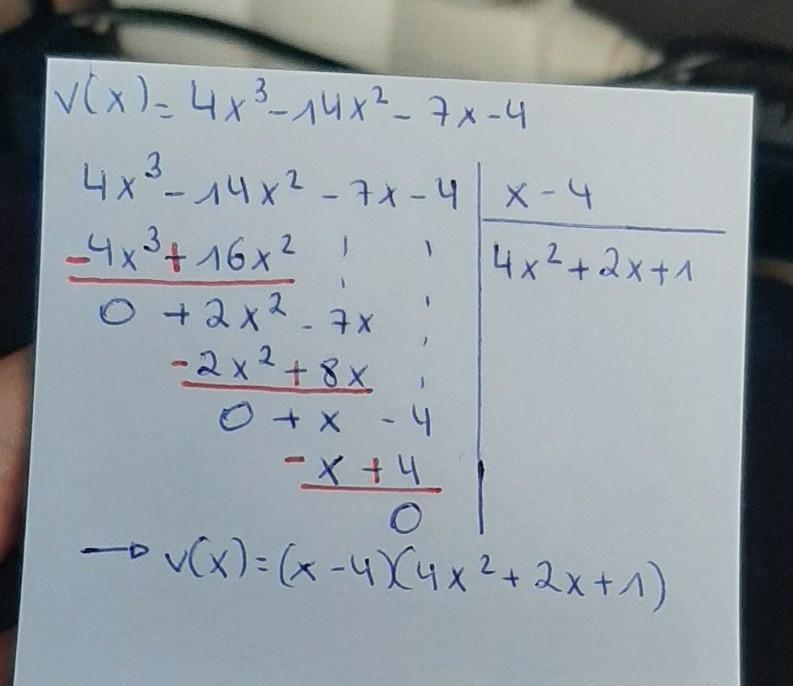 v(x) = 4x³ - 14x² - 7x - 4
4x³ - 14x² - 7x - 4 | x - 4
-4x³ + 16x² | 4x² + 2x + 1
0 + 2x² - 7x
-2x² + 8x
0 + x - 4
-x + 4
0
→ v(x) = (x - 4)(4x² + 2x + 1)